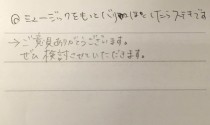 @ ミュージックをもっとバリ　はば　したらステキです
→ ご意見ありがとうございます。
ぜひ 検討させていただきます。